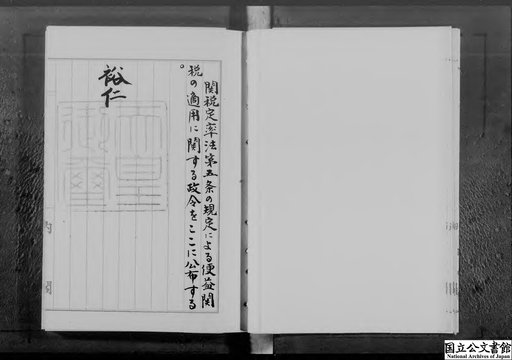 関税定率法第五条の規定による便益関
税の適用に関する政令をここに公布する
。
裕仁
天皇
御璽
内閣
国立公文書館
National Archives of Japan